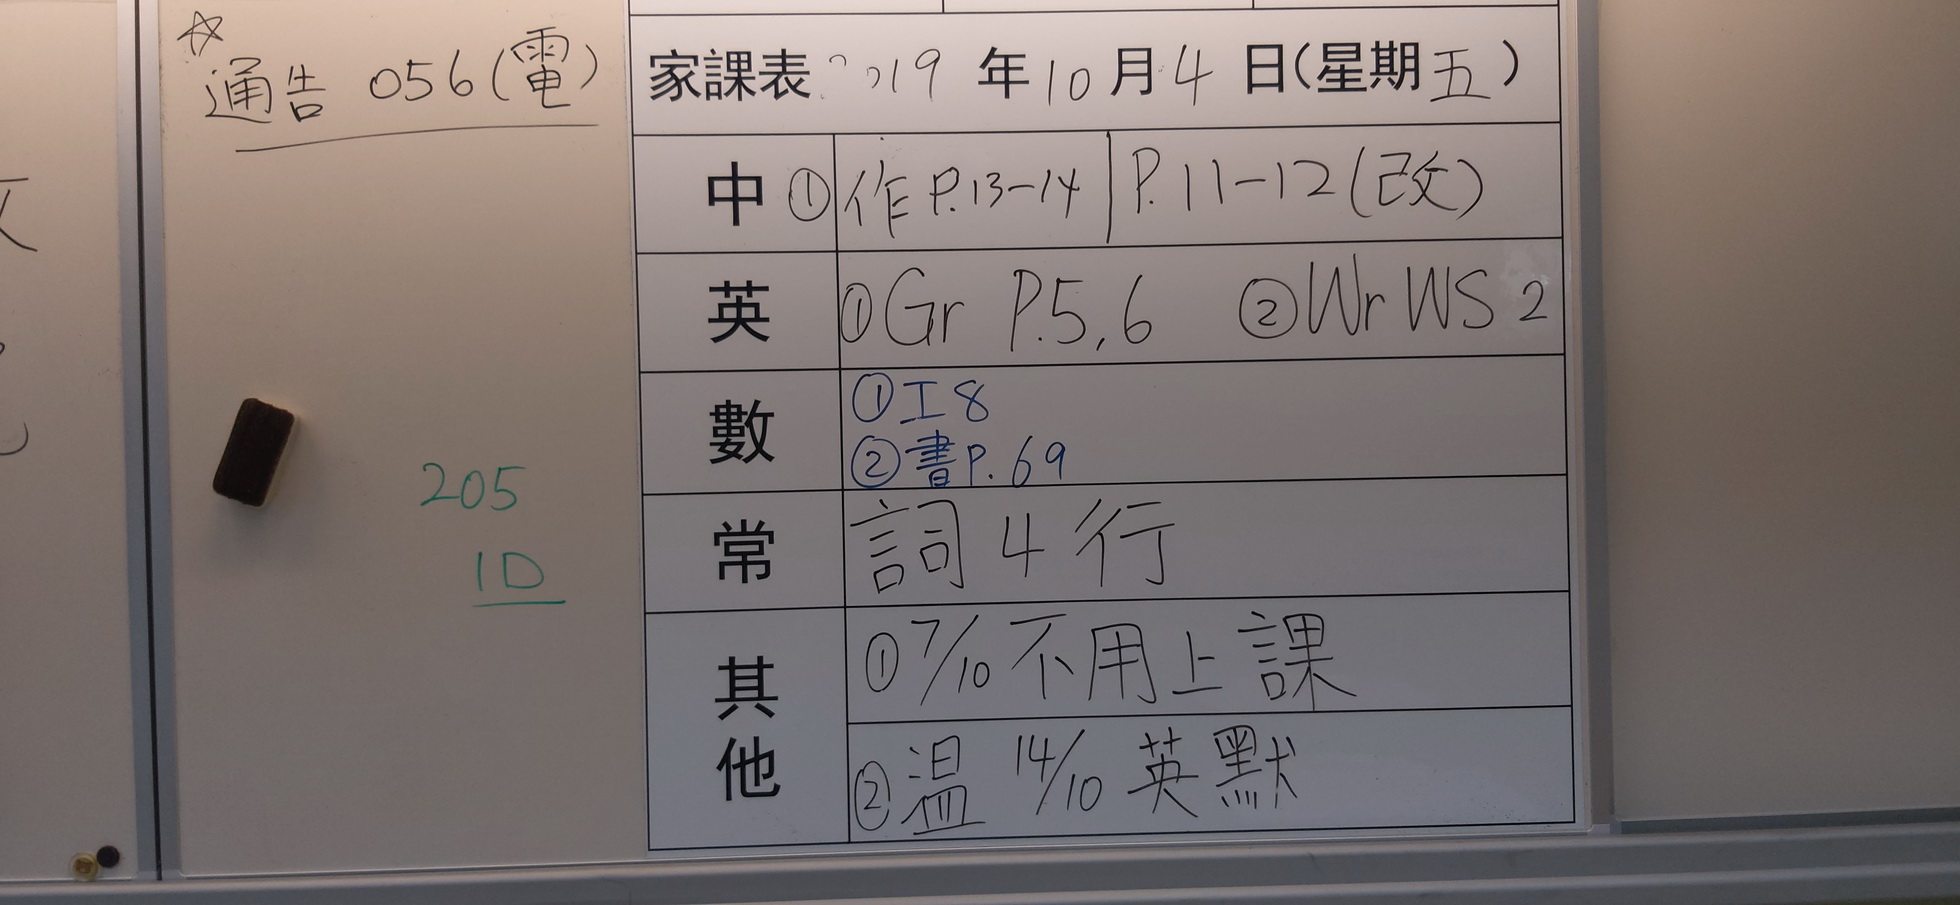 ☆
通告 056(電)
205
1D
家課表 2019 年 10 月 4 日(星期五)
中 ① 作 P.13-14 | P.11-12(改)
英 ① Gr P.5,6 ② Wr WS 2
數 ① 工 8
② 書 P.69
常 詞 4 行
其他 ① 7/10 不用上課
② 溫 14/10 英默